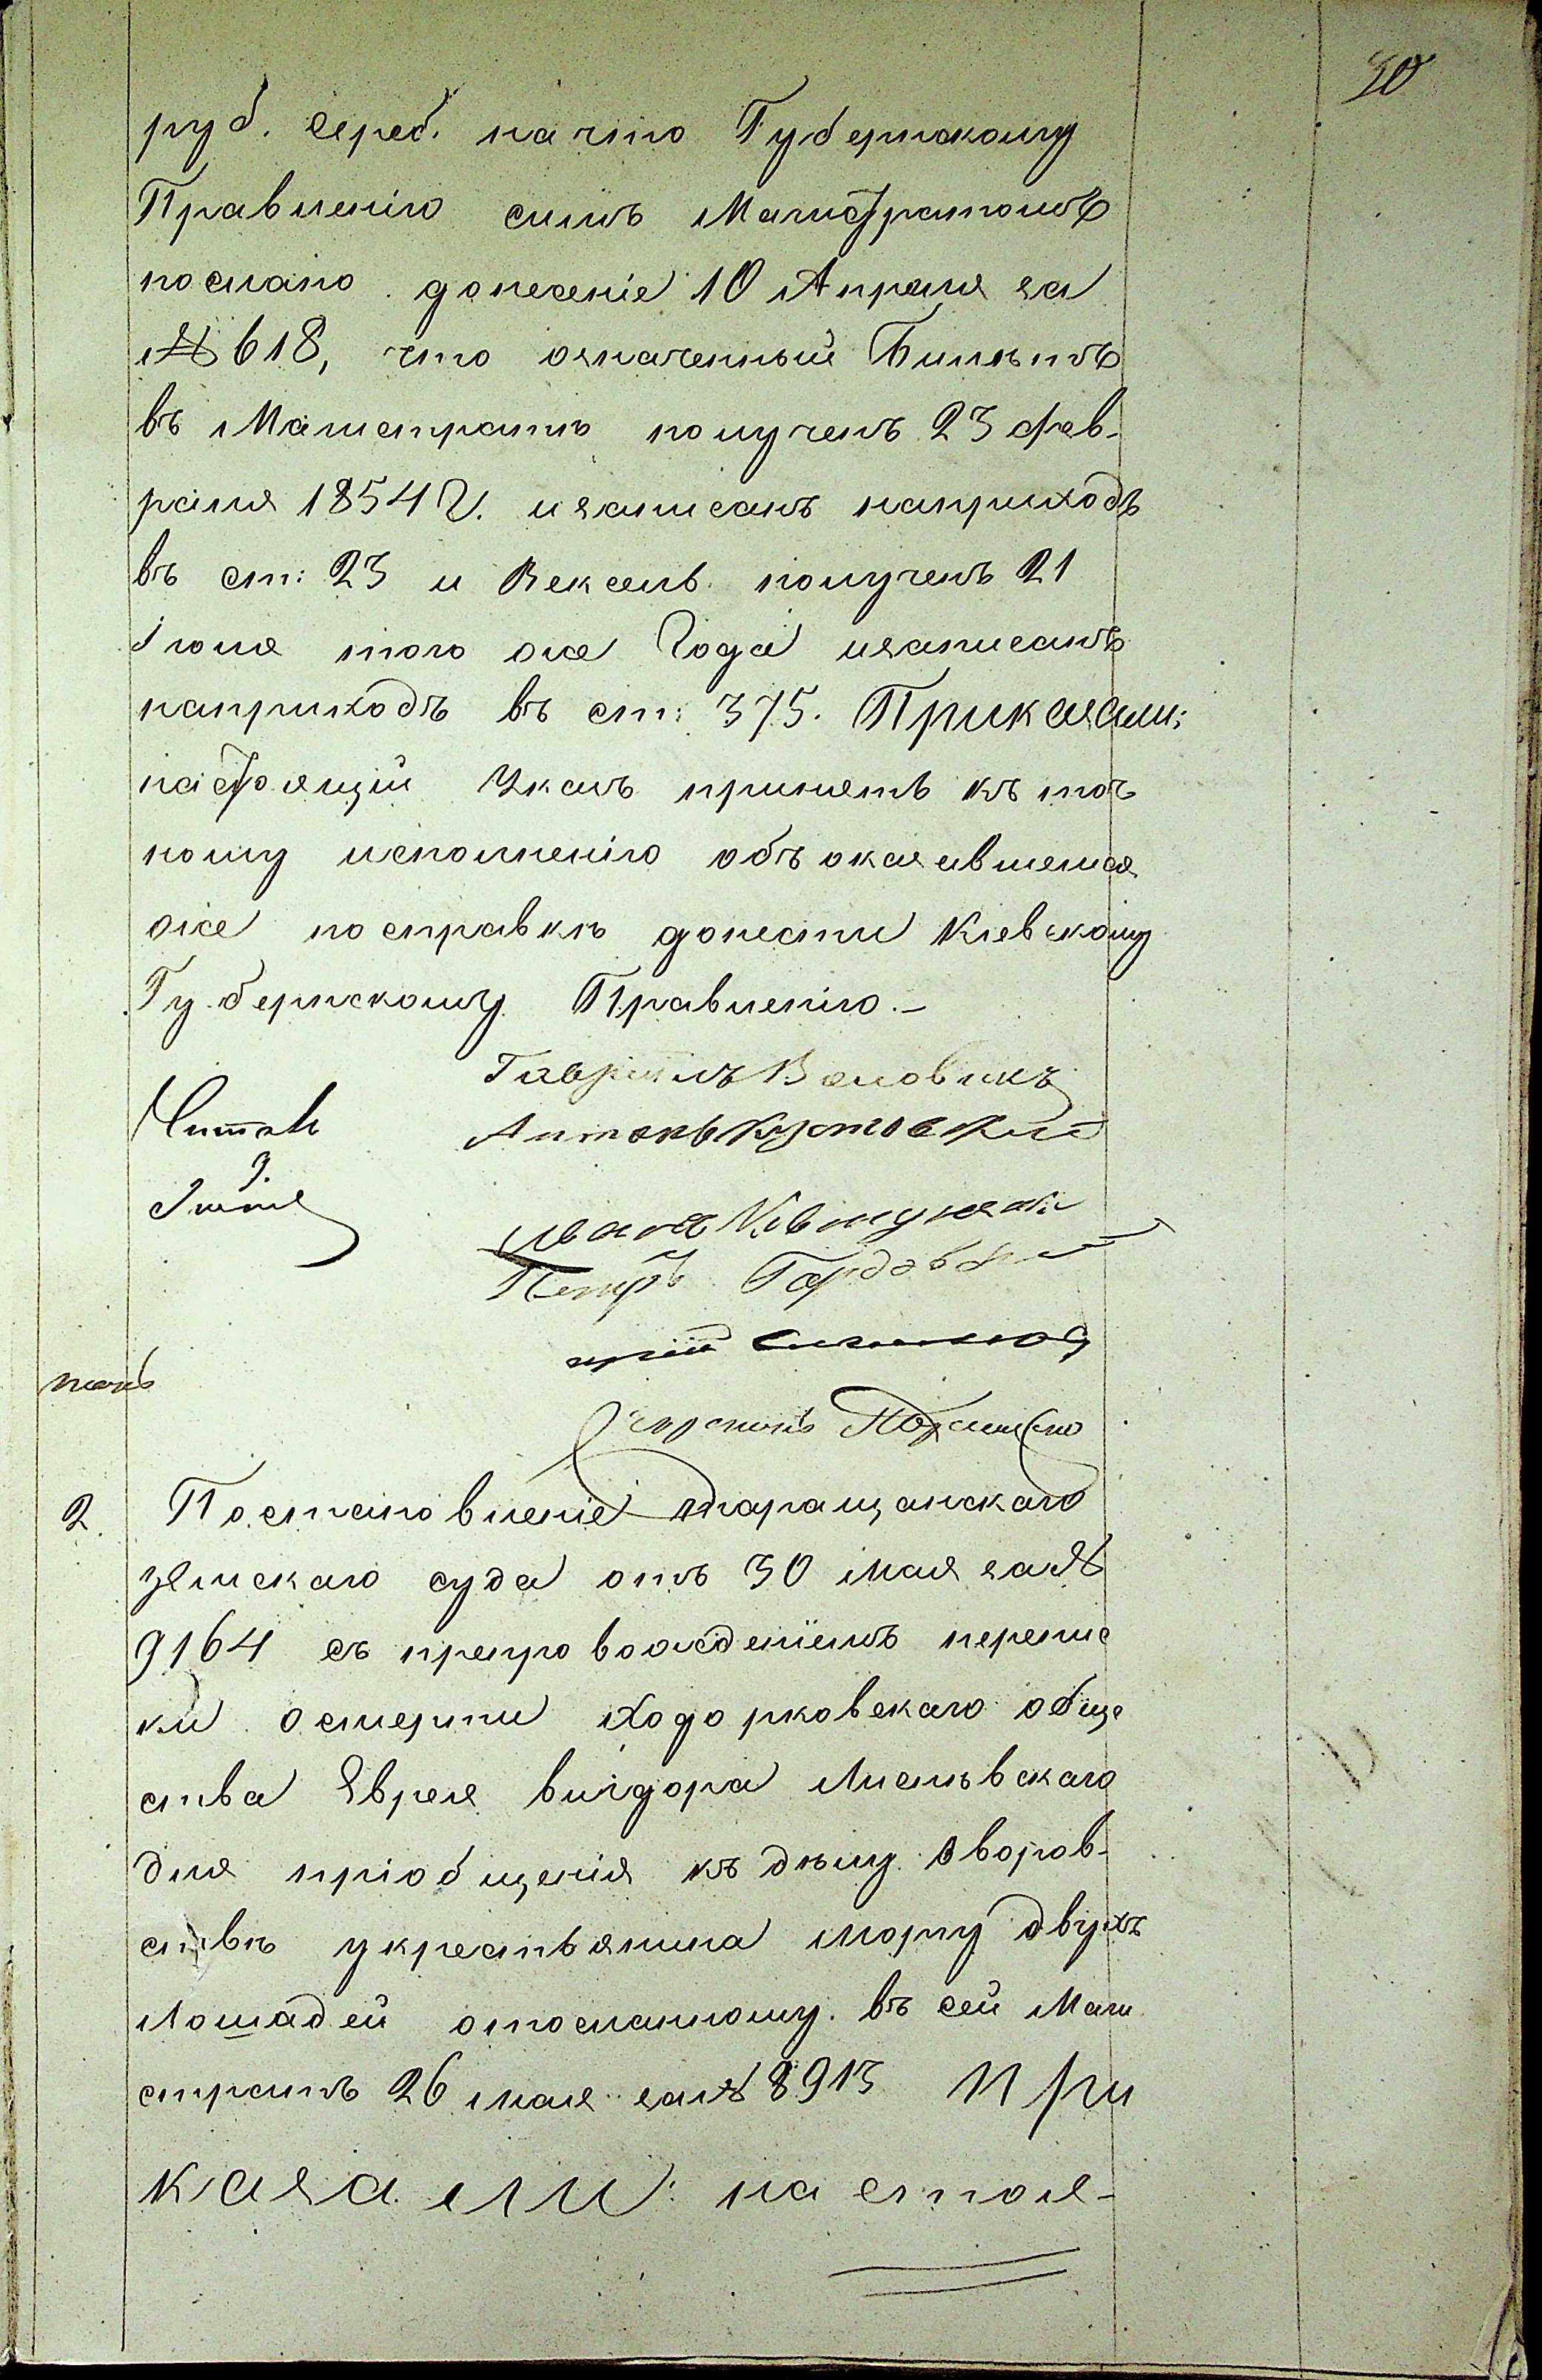 30
руб. сереб. на что Губернскому
Правленію симъ Магистратомъ
послано донесеніе 10 Апреля за
№ 618, что означенный Билетъ
въ Магистратъ полученъ 23 фев-
раля 1854 г. и записанъ наприходъ
въ ст: 23 и Вексель полученъ 21
Іюля того же Года изаписанъ
наприходъ въ ст: 375. Приказали:
настоящій Указъ принять къ точ
ному исполненію объ оказавшемся
же по справкѣ донести Кіевскому
Губернскому Правленію.-
Гавріилъ
Читалъ
Антонъ
9.
Іюня
Иванъ
Петръ
2. Постановленіе Таращанскаго
земскаго суда отъ 30 мая за №
9164 съ препровожденіемъ перепис
ки о смерти Ходорковскаго обще
ства Еврея Вигдора Лисянскаго
для пріобщенія къ дѣлу о воров-
ствѣ у крестьянина Морпу двухъ
лошадей отосланному въ сей Маги
стратъ 26 мая за № 8913 При
казали: на стоя-